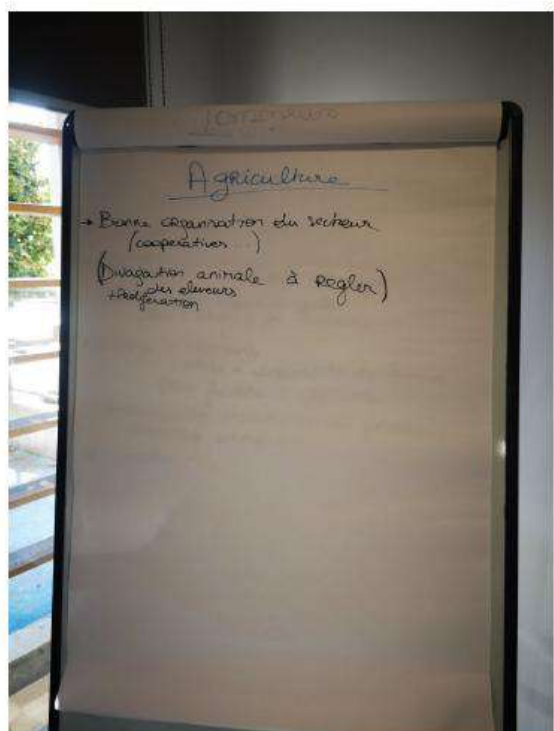 Agriculture
→ Bonne organisation du secteur
(coopératives...)
(Divagation animale à régler)
des éleveurs